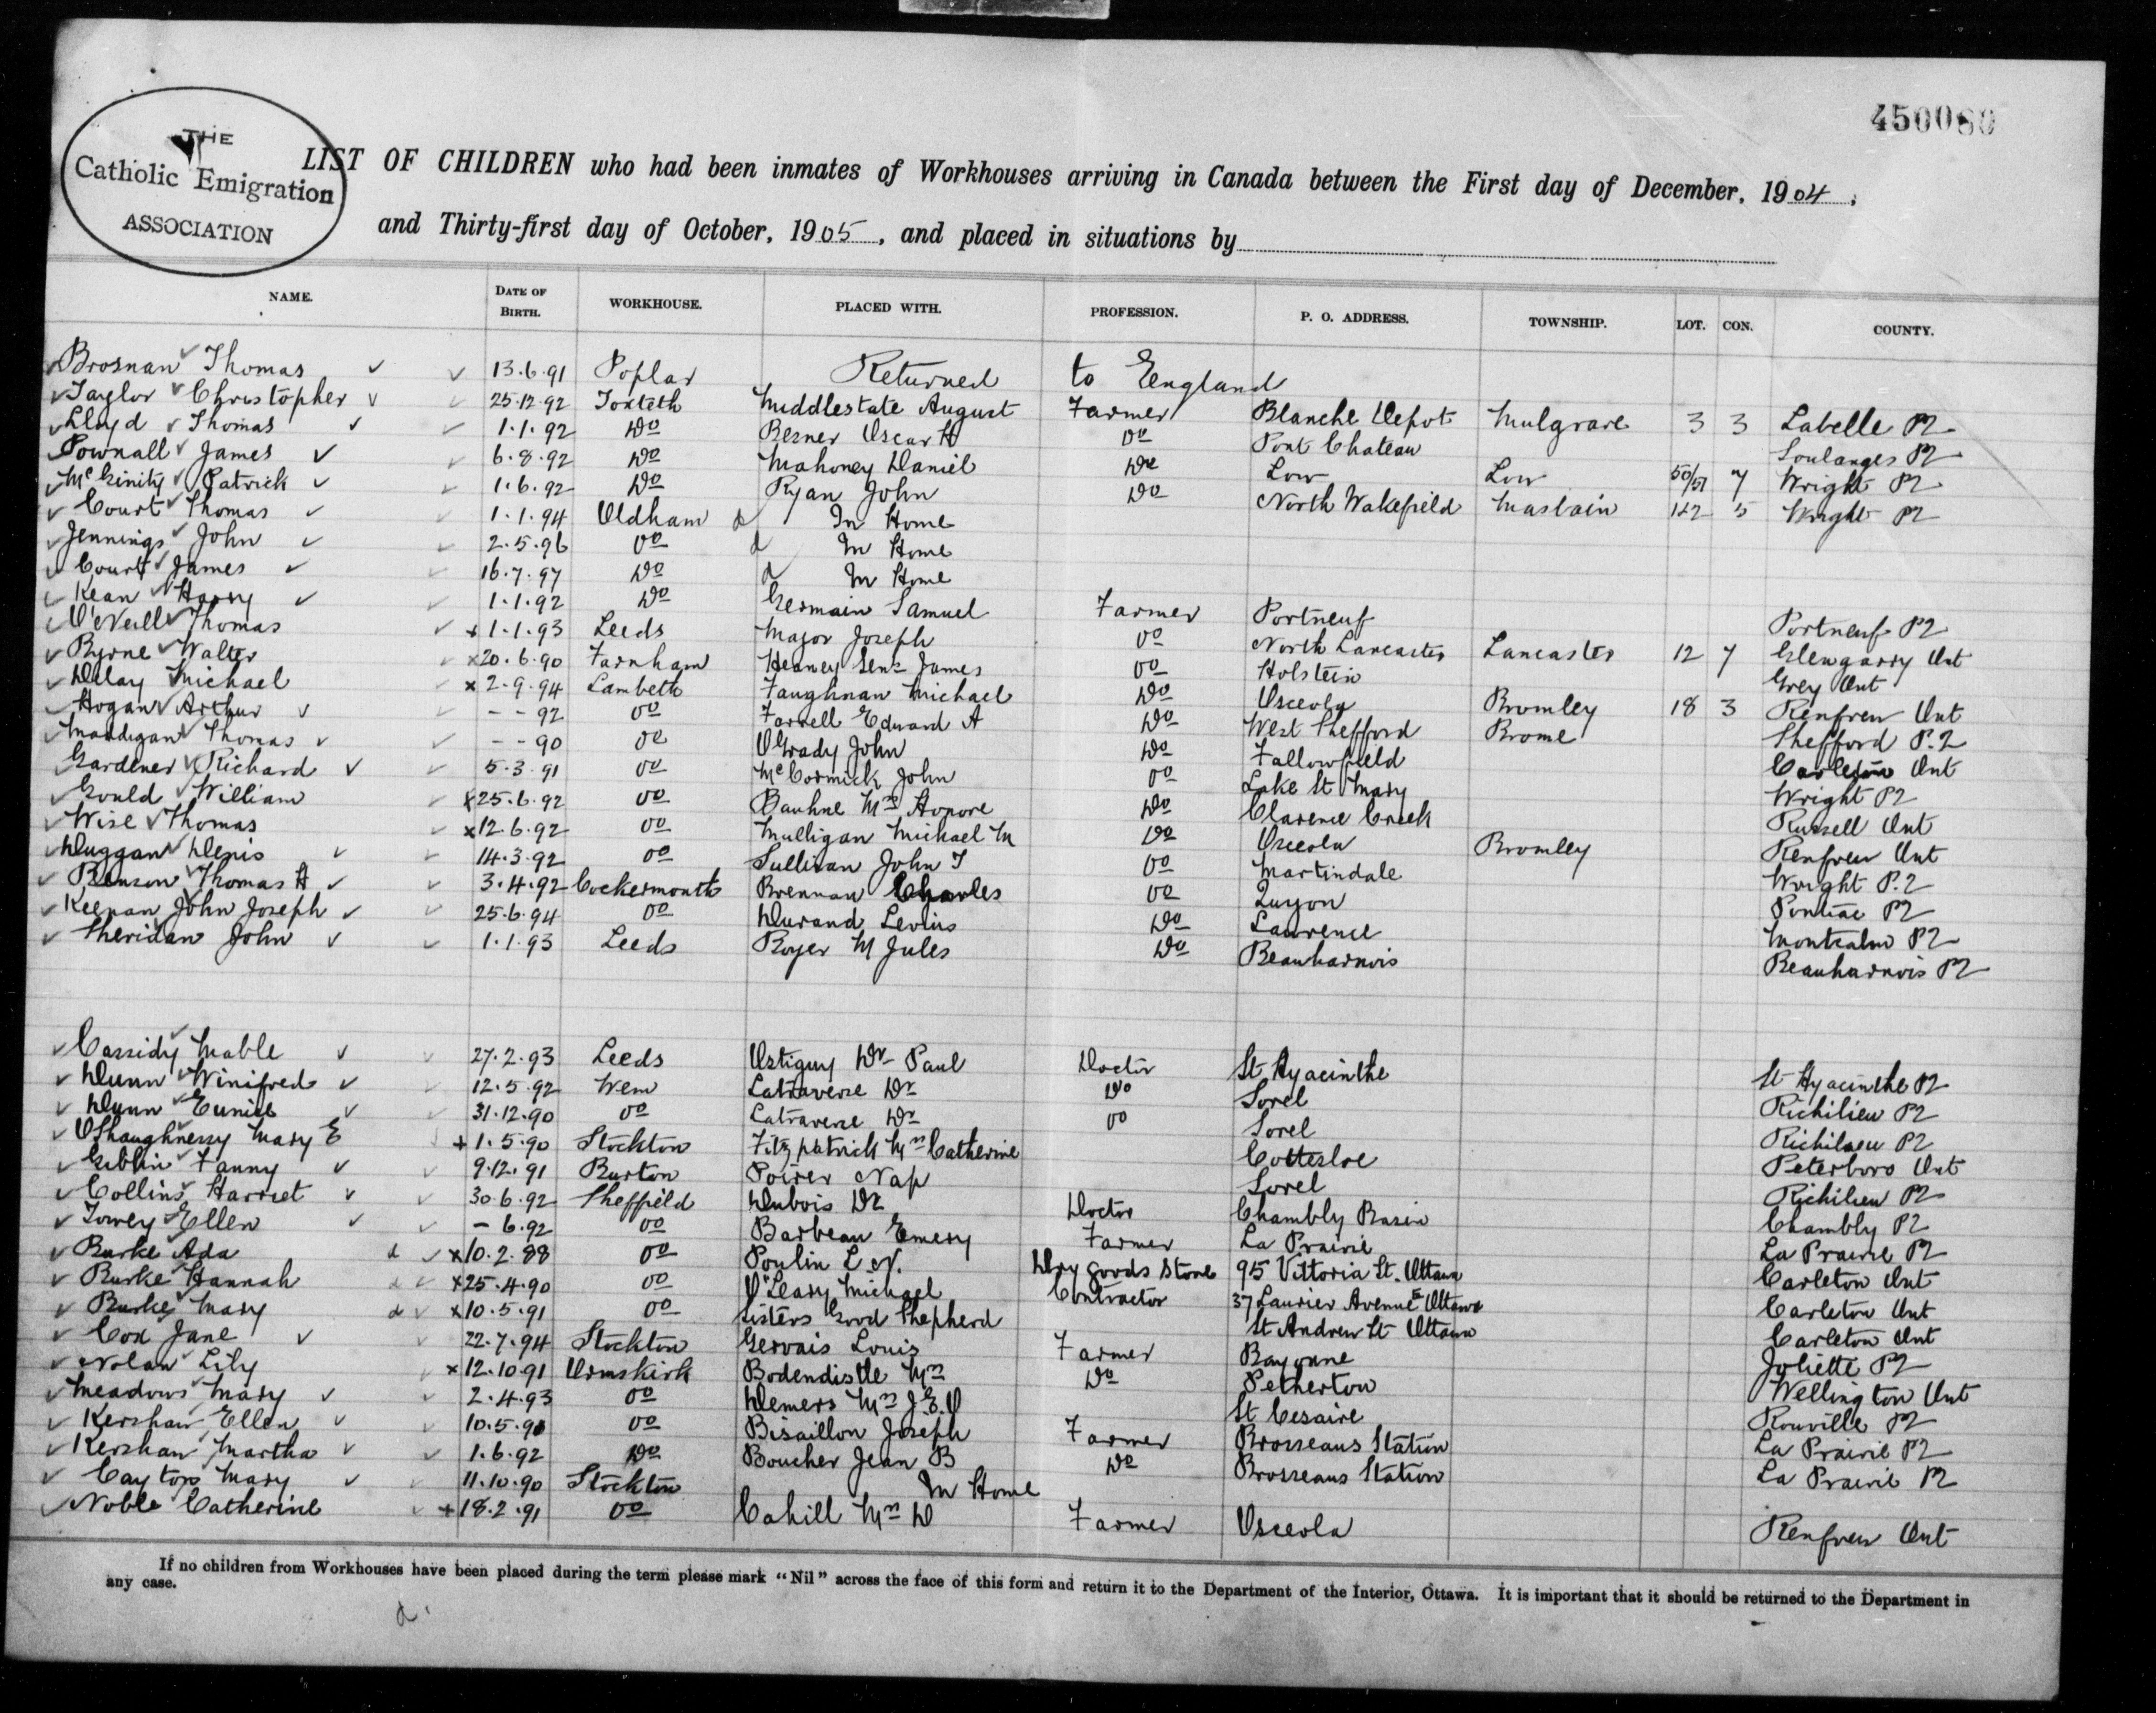 450080
THE
Catholic Emigration
ASSOCIATION
LIST OF CHILDREN who had been inmates of Workhouses arriving in Canada between the First day of December, 1904,
and Thirty-first day of October, 1905, and placed in situations by
NAME. DATE OF BIRTH. WORKHOUSE. PLACED WITH. PROFESSION. P. O. ADDRESS. TOWNSHIP. LOT. CON. COUNTY.
Brosnan Thomas 13.6.91 Poplar Returned to England
Taylor Christopher 25.12.92 Toxteth Middlestate August Farmer Blanche Depot Mulgrave 3 3 Labelle PQ
Lloyd Thomas 1.1.92 Do Berner Oscar H Do Pont Chateau Soulanges PQ
Pownall James 6.8.92 Do Mahoney Daniel Do Low Low 50/51 7 Wright PQ
McGinity Patrick 1.6.92 Do Ryan John Do North Wakefield Masham 1&2 5 Wright PQ
Court Thomas 1.1.94 Oldham d In Home
Jennings John 2.5.96 Do d In Home
Court James 16.7.97 Do d In Home
Kean Harry 1.1.92 Do Germain Samuel Farmer Portneuf Portneuf PQ
O'Neill Thomas x 1.1.93 Leeds Major Joseph Do North Lancaster Lancaster 12 7 Glengarry Ont
Byrne Walter x 20.6.90 Farnham Heaney Senr James Do Holstein Grey Ont
Dilay Michael x 2.9.94 Lambeth Faughnan Michael Do Osceola Bromley 18 3 Renfrew Ont
Hogan Arthur - - 92 Do Farrell Edward A Do West Shefford Brome Shefford P.Q
Maddigan Thomas - - 90 Do OGrady John Do Fallowfield Carleton Ont
Gardener Richard 5.3.91 Do McCormick John Do Lake St Mary Wright PQ
Gould William x 25.6.92 Do Mrs Honore Do Clarence Creek Russell Ont
Wise Thomas x 12.6.92 Do Mulligan Michael M Do Osceola Bromley Renfrew Ont
Duggan Denis 14.3.92 Do Sullivan John J Do Martindale Wright P.Q
Benson Thomas H 3.4.92 Cockermouth Brennan Charles Do Quyon Pontiac PQ
Keenan John Joseph 25.6.94 Do Durand Do Lawrence Montcalm PQ
Sheridan John 1.1.93 Leeds Royer M Jules Do Beauharnois Beauharnois PQ
Cassidy Mable 27.2.93 Leeds Ostiguy Dr Paul Doctor St Hyacinthe St Hyacinthe PQ
Dunn Winifred 12.5.92 Wem Latraverse Dr Do Sorel Richilieu PQ
Dunn Eunice 31.12.90 Do Latraverse Dr Do Sorel Richilieu PQ
OShaughnessy Mary E x 1.5.90 Stockton Fitzpatrick Mrs Catherine Cottesloe Peterboro Ont
Giblin Fanny 9.12.91 Burton Poirer Nap Sorel Richilieu PQ
Collins Harriet 30.6.92 Sheffield Dubois Dr Doctor Chambly Basin Chambly PQ
Towey Ellen - 6.92 Do Barbeau Emery Farmer La Prairie La Prairie PQ
Burke Ada d x 10.2.88 Do Poulin L.N. Dry goods Store 95 Vittoria St. Ottawa Carleton Ont
Burke Hannah d x 25.4.90 Do O'Leary Michael Contractor 37 Laurier Avenue E Ottawa Carleton Ont
Burke Mary d x 10.5.91 Do Sisters Good Shepherd St Andrew St Ottawa Carleton Ont
Cox Jane 22.7.94 Stockton Gervais Louis Farmer Bayonne Joliette PQ
Nolan Lily x 12.10.91 Ormskirk Bodendistle Mrs Do Petherton Wellington Ont
Meadows Mary 2.4.93 Do Demers Mrs J.E.O St Cesaire Rouville PQ
Kershaw Ellen 10.5.90 Do Bisaillon Joseph Farmer Brosseaus Station La Prairie PQ
Kershaw Martha 1.6.92 Do Boucher Jean B Do Brosseaus Station La Prairie PQ
Caytons Mary 11.10.90 Stockton In Home
Noble Catherine x 18.2.91 Do Cahill Mrs D Farmer Osceola Renfrew Ont
If no children from Workhouses have been placed during the term please mark "Nil" across the face of this form and return it to the Department of the Interior, Ottawa. It is important that it should be returned to the Department in
any case.
d.